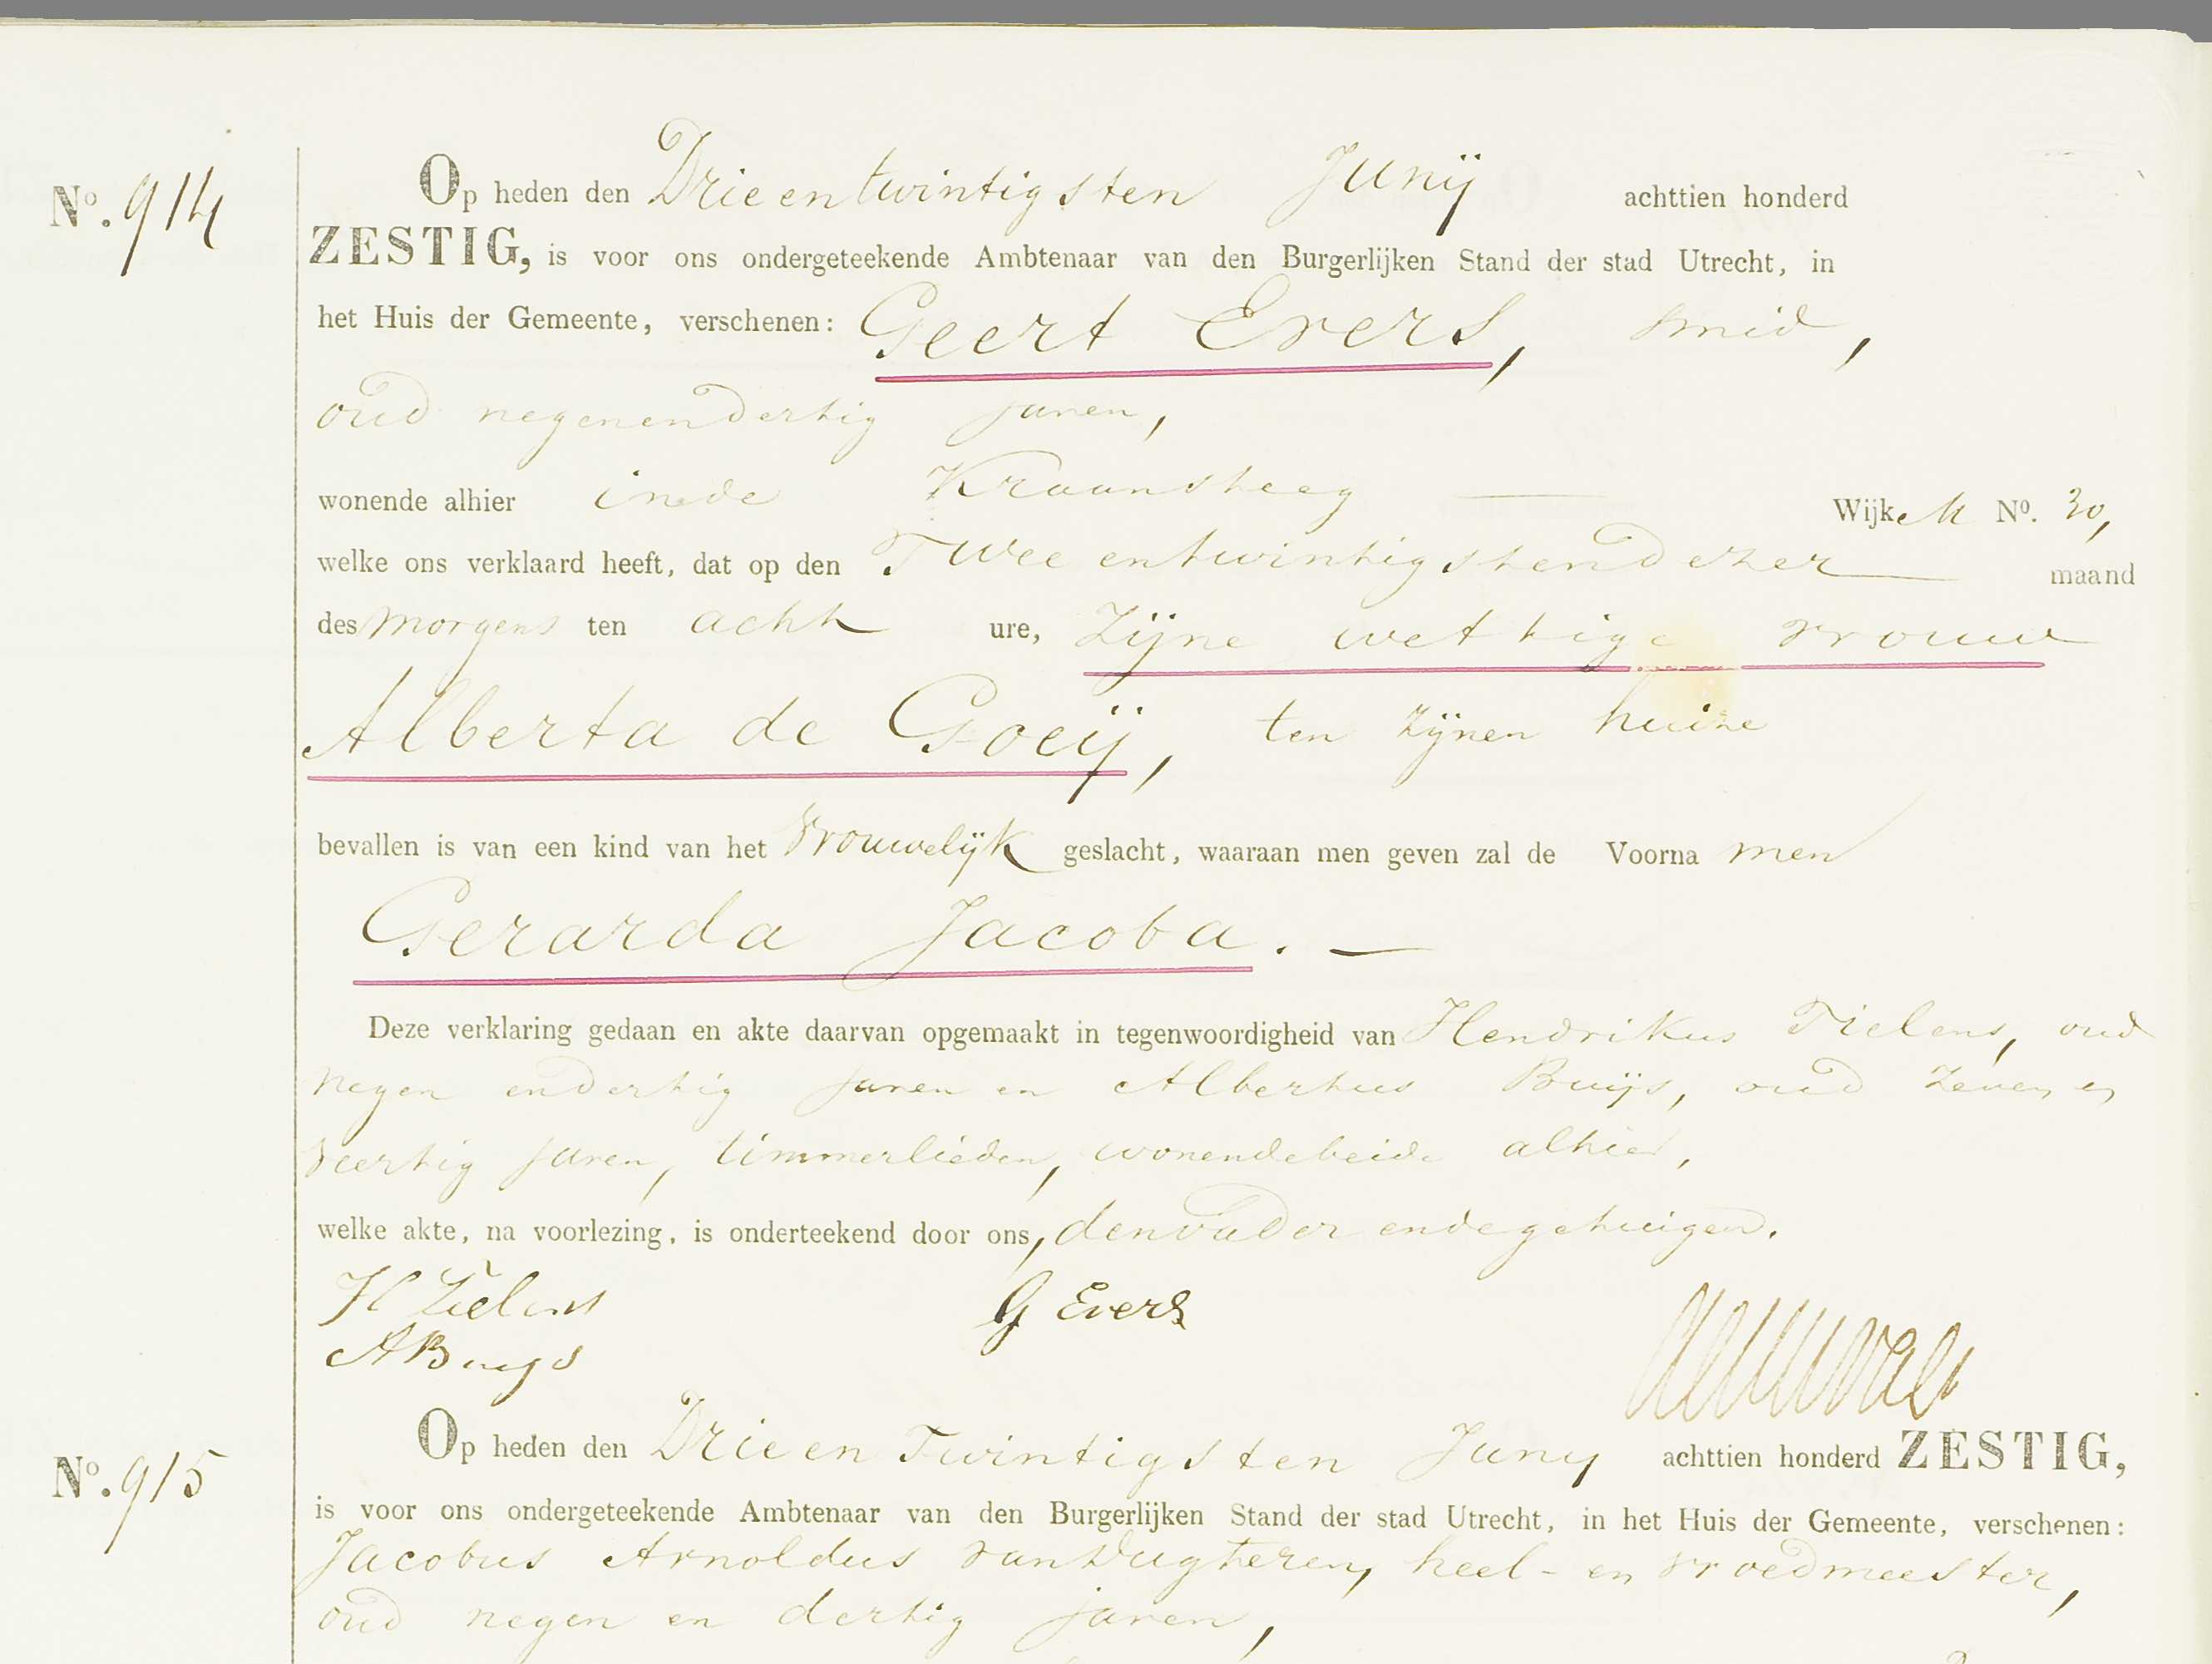 Nº. 914
Op heden den Drieentwintigsten Junij achttien honderd
ZESTIG, is voor ons ondergeteekende Ambtenaar van den Burgerlijken Stand der stad Utrecht, in
het Huis der Gemeente, verschenen: Geert Evers, smid,
oud negenendertig jaren,
wonende alhier in de Kraansteeg — Wijk M Nº. 30,
welke ons verklaard heeft, dat op den Twee entwintigsten dezer maand
des morgens ten acht ure, Zijne wettige vrouw
Alberta de Goeij, ten zijnen huize
bevallen is van een kind van het Vrouwelijk geslacht, waaraan men geven zal de Voorna men
Gerarda Jacoba. —
Deze verklaring gedaan en akte daarvan opgemaakt in tegenwoordigheid van Hendrikus Tielens, oud
negen endertig jaren en Albertus Buijs, oud zeven en
veertig jaren, timmerlieden, wonende beide alhier,
welke akte, na voorlezing, is onderteekend door ons, den vader en de getuigen.
H Tielens G Evers
A Buijs
Nº. 915
Op heden den Drie en Twintigsten Juny achttien honderd ZESTIG,
is voor ons ondergeteekende Ambtenaar van den Burgerlijken Stand der stad Utrecht, in het Huis der Gemeente, verschenen:
Jacobus Arnoldus van Lugteren, heel- en vroedmeester,
oud negen en dertig jaren,